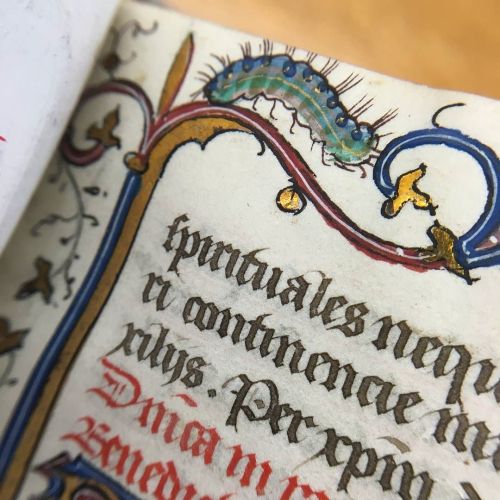 spirituales nequi
ri continencie
xilijs. Per xp̄m
Dn̄ica in
Benedic